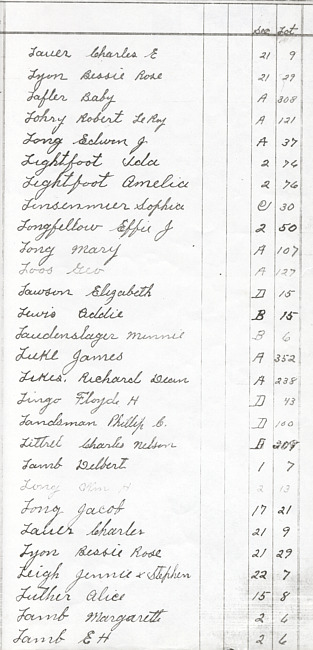 Sec Lot
Lauer Charles E 21 9
Lyon Bessie Rose 21 29
Lafler Baby A 308
Lohry Robert LeRoy A 121
Long Edwin J A 37
Lightfoot Ida 2 76
Lightfoot Amelia 2 76
Linsenmier Sophia C 30
Longfellow Effie J 2 50
Long Mary A 107
Loos Geo A 127
Lawson Elizabeth D 15
Lewis Addie B 15
Laudenslager Minnie B 6
Lukl James A 352
Likes, Richard Dean A 238
Lingo Floyde H D 43
Landsman Phillip C. D 100
Littrel Charles Nelson
Lamb Delbert 1 7
Long Wm H 2 13
Long Jacob 17 21
Lauer Charles 21 9
Lyon Bessie Rose 21 29
Leigh Jennie & Stephen 22 7
Luther Alice 15 8
Lamb Margarett 2 6
Lamb E H 2 6